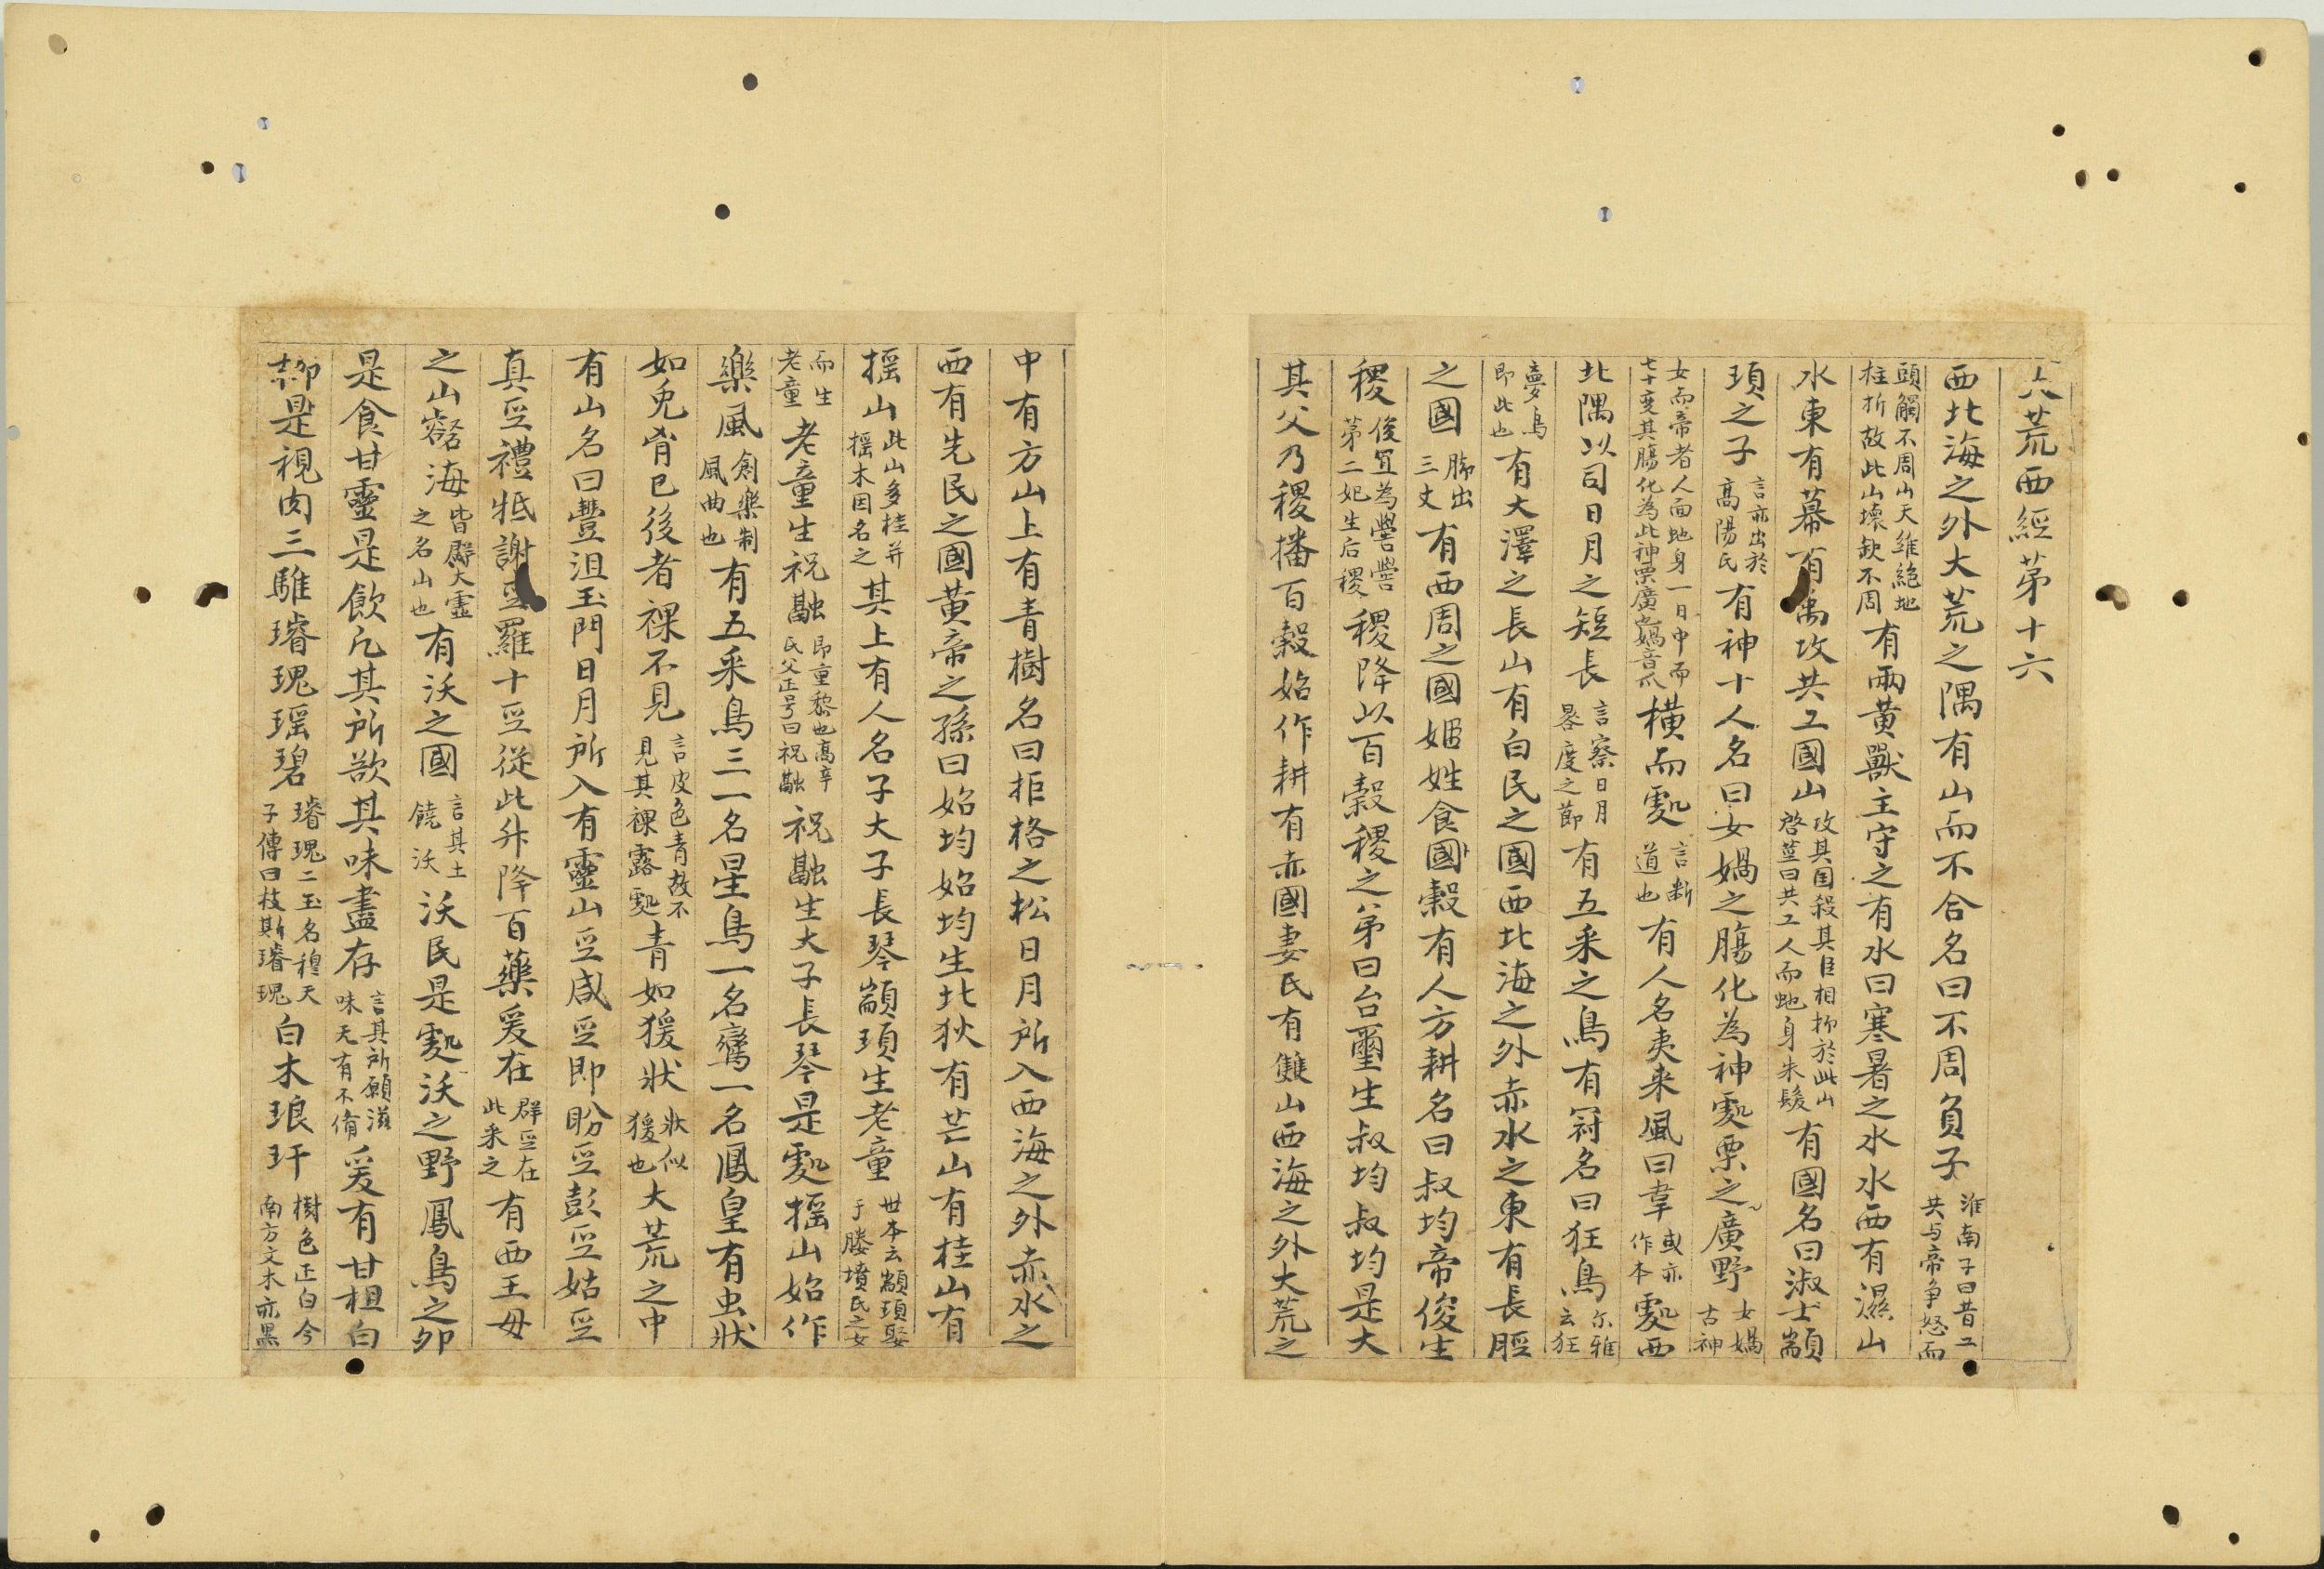 大荒西經苐十六
西北海之外大荒之隅有山而不合名曰不周負子淮南子曰昔工共与帝争怒而
頭觸不周山天維絶地柱折故此山壊缺不周有兩黄獸主守之有水曰寒暑之水水西有濕山
水東有幕有禹攻共工國山攻其国殺其臣相柳於此山啓莖曰共工人而虵身朱髮有國名曰淑士顓
頊之子言亦出於髙陽氏有神十人名曰女媧之膓化為神䖏栗之廣野女媧古神
女而帝者人面虵身一日中而七十変其膓化為此神栗廣之野媧音瓜橫而䖏言断道也有人名夷来風曰韋或亦作本䖏西
北隅以司日月之短長言察日月晷度之節有五采之鳥有冠名曰狂鳥尔雅云狂
夢鳥即此也有大澤之長山有白民之國西北海之外赤水之東有長脛
之國腳出三丈有西周之國姬姓食國穀有人方耕名曰叔均帝俊生
稷俊冝為嚳嚳苐二妃生后稷稷降以百穀稷之弟曰台璽生叔均叔均是大
其父乃稷播百穀始作耕有赤國妻氏有雙山西海之外大荒之
中有方山上有青樹名曰拒格之松日月所入西海之外赤水之
西有先民之國黄帝之孫曰始均始均生北狄有芒山有桂山有
揺山此山多桂并揺木因名之其上有人名子大子長琴顓頊生老童世本云顓頊娶于縢墳氏之女
而生老童老童生祝融即重黎也髙辛氏父正号曰祝融祝融生大子長琴是䖏揺山始作
樂風創樂制風曲也有五采鳥三一名星鳥一名鸞一名鳳皇有虫狀
如兎胷已後者裸不見言皮色青故不見其裸露䖏青如猨狀狀似猨也大荒之中
有山名曰豐沮玉門日月所入有靈山巫咸巫即盼巫彭巫姑巫
真巫禮牴謝巫羅十巫從此升降百藥爰在群巫在此采之有西王毋
之山壑海皆群大霊之名山也有沃之國言其土饒沃沃民是䖏沃之野鳳鳥之夘
是食甘靈是飲凢其所欲其味盡存言其所願滋味无有不俻爰有甘柤白
栁是視肉三騅璿瑰瑶碧璿瑰二玉名穆天子傳曰枝斯璿瑰白木琅玕樹色正白今南方文木亦黒